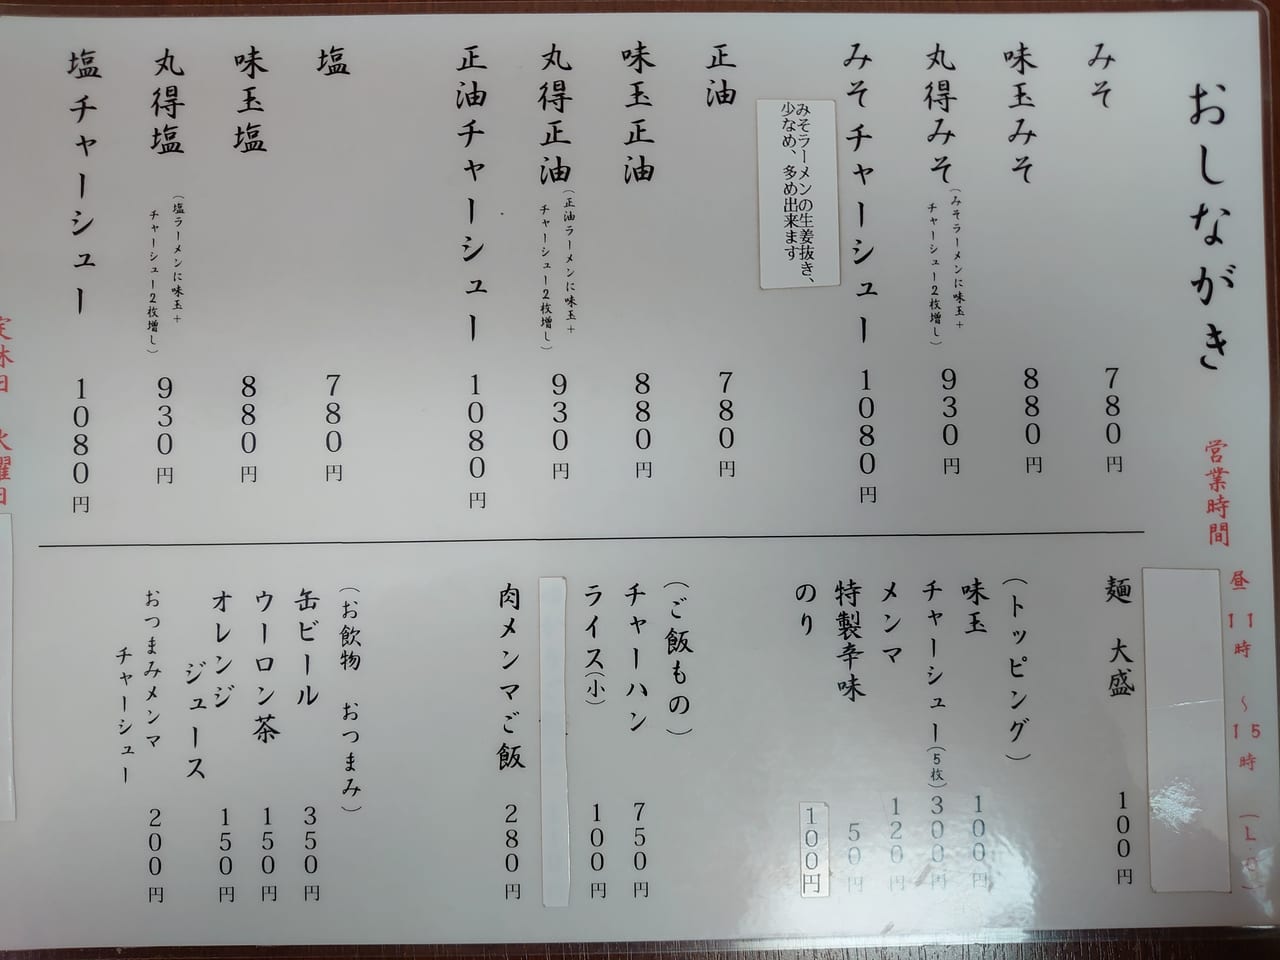 おしながき
営業時間
昼 11時 ～ 15時 (L.O)
みそ 780円
味玉みそ 880円
丸得みそ (みそラーメンに味玉＋
チャーシュー2枚増し) 930円
みそチャーシュー 1080円
みそラーメンの生姜抜き、
少なめ、多め出来ます
正油 780円
味玉正油 880円
丸得正油 (正油ラーメンに味玉＋
チャーシュー2枚増し) 930円
正油チャーシュー 1080円
塩 780円
味玉塩 880円
丸得塩 (塩ラーメンに味玉＋
チャーシュー2枚増し) 930円
塩チャーシュー 1080円
麺 大盛 100円
(トッピング)
味玉 100円
チャーシュー(5枚) 300円
メンマ 120円
特製辛味 50円
のり 100円
(ご飯もの)
チャーハン 750円
ライス(小) 100円
肉メンマご飯 280円
(お飲物 おつまみ)
缶ビール 350円
ウーロン茶 150円
オレンジ
ジュース 150円
おつまみメンマ
チャーシュー 200円
定休日 火曜日